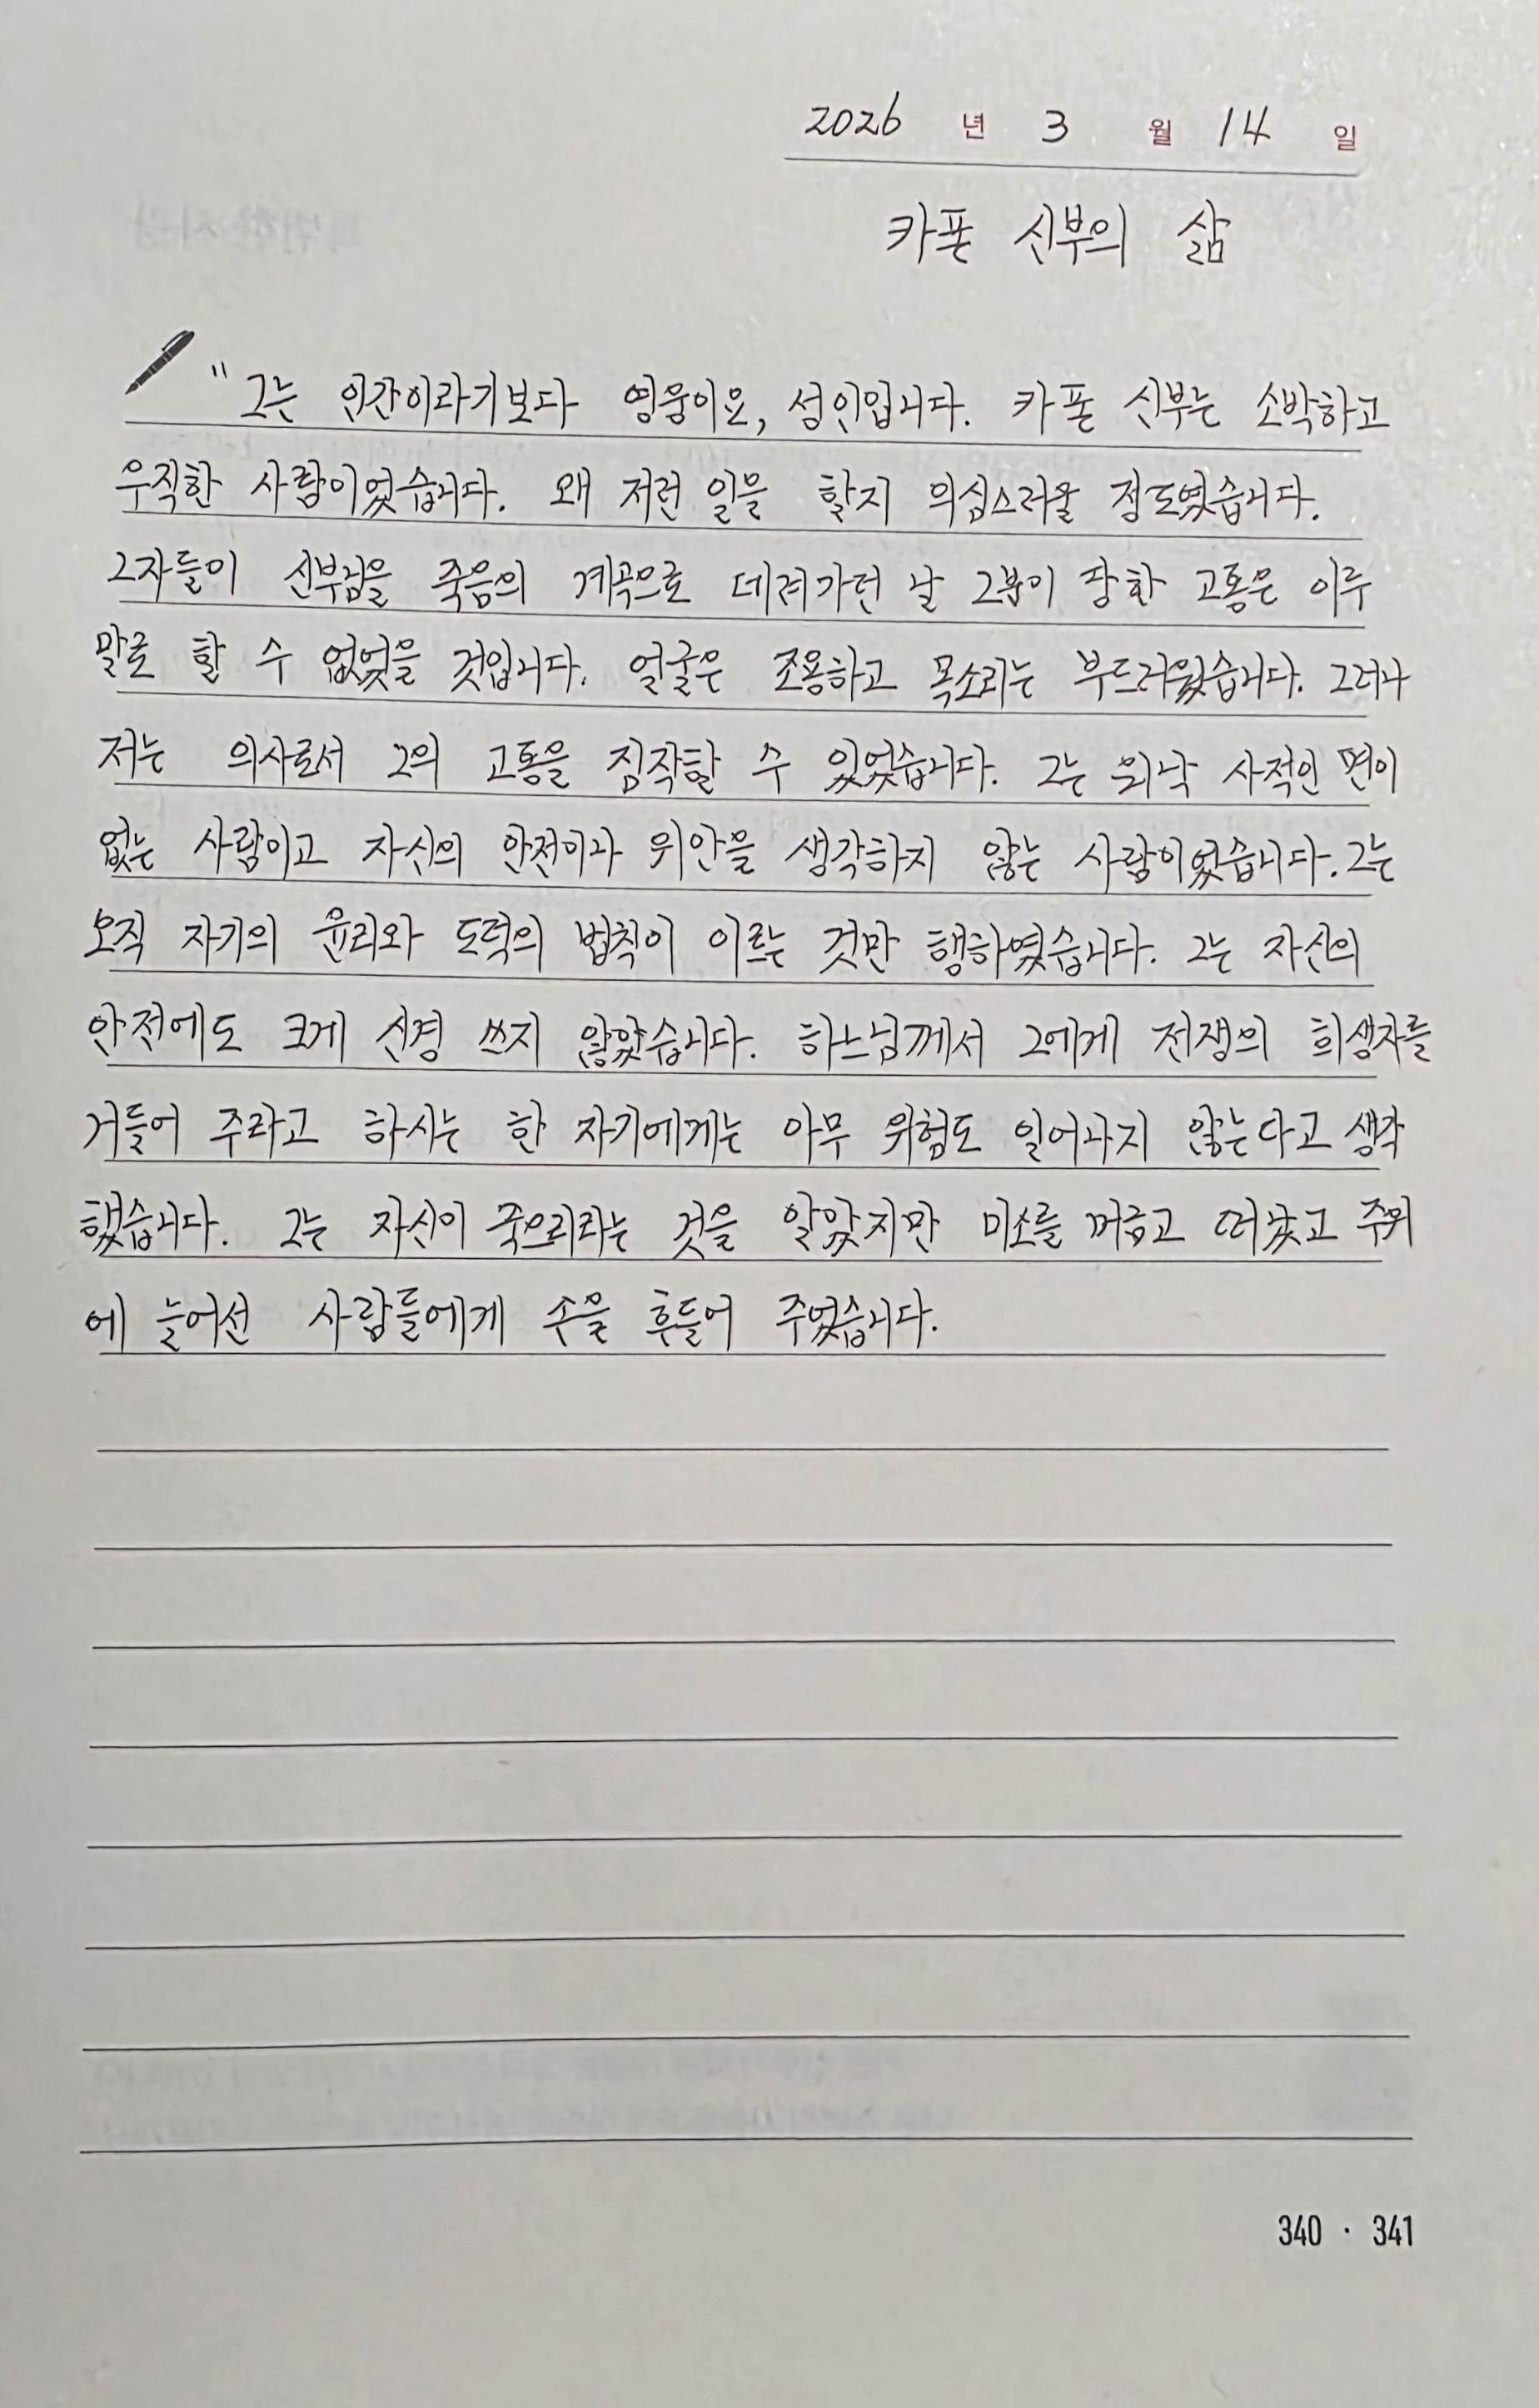 2026 년 3 월 14 일
카폰 신부의 삶
"그는 인간이라기보다 영웅이요, 성인입니다. 카폰 신부는 소박하고
우직한 사람이었습니다. 왜 저런 일을 할지 의심스러울 정도였습니다.
그자들이 신부님을 죽음의 계곡으로 데려가던 날 그분이 당한 고통은 이루
말로 할 수 없었을 것입니다. 얼굴은 조용하고 목소리는 부드러웠습니다. 그러나
저는 의사로서 그의 고통을 짐작할 수 있었습니다. 그는 워낙 사적인 면이
없는 사람이고 자신의 안전이나 위안을 생각하지 않는 사람이었습니다. 그는
오직 자기의 윤리와 도덕의 법칙이 이르는 것만 행하였습니다. 그는 자신의
안전에도 크게 신경 쓰지 않았습니다. 하느님께서 그에게 전쟁의 희생자를
거들어 주라고 하시는 한 자기에게는 아무 위험도 일어나지 않는다고 생각
했습니다. 그는 자신이 죽으리라는 것을 알았지만 미소를 머금고 떠났고 주위
에 늘어선 사람들에게 손을 흔들어 주었습니다.
340 · 341